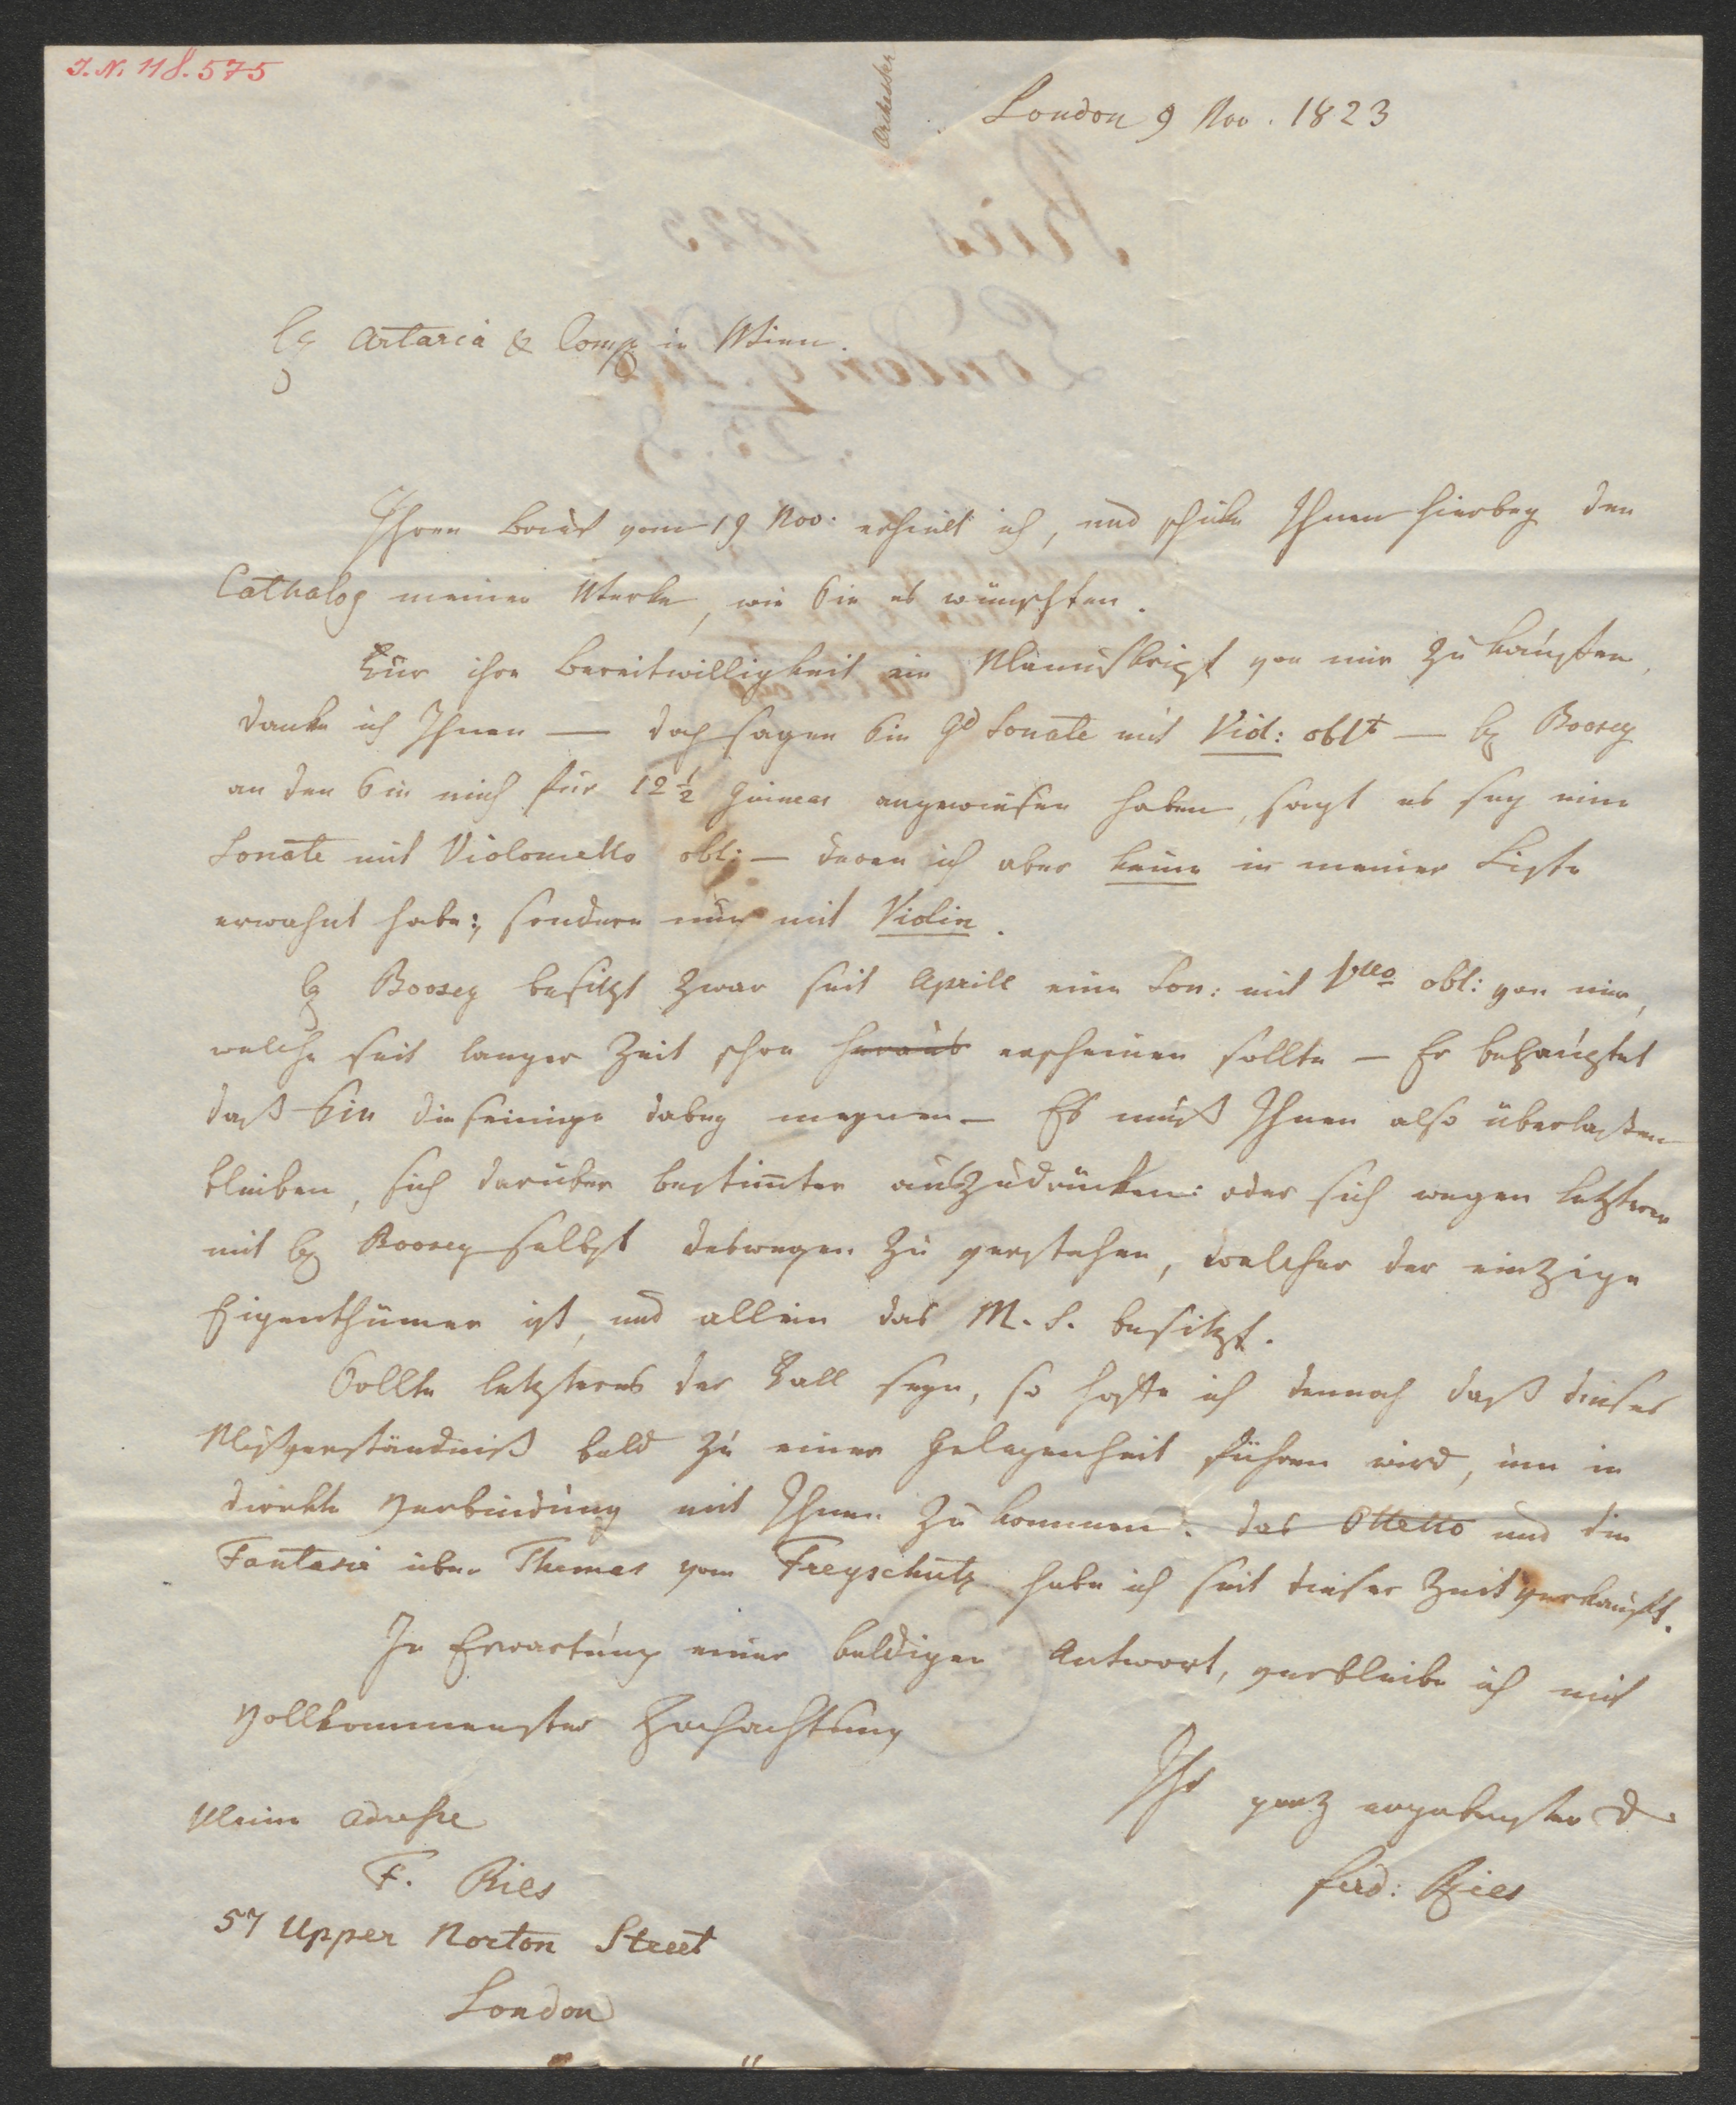 I. N. 118.575
Orchester
London 9 Nov. 1823
H Artaria & Comp in Wien.
Ihren Brief vom 19 Nov. erhielt ich, und schicke Ihnen hierbey den
Cathalog meiner Werke, wie Sie es wünschten.
Für ihre Bereitwilligkeit ein Manuskript von mir zu kaufen,
danke ich Ihnen — doch sagen Sie Gd Sonate mit Viol: oblt — H Boosey
an den Sie mich für 12½ Guineas angewiesen haben, sagt es sey eine
Sonate mit Violoncello obl: — deren ich aber keine in meiner Liste
erwahnt habe; sondern nur mit Violin.
H Boosey besitzt zwar seit Aprill eine Son: mit Vllo obl: von mir,
welche seit langer Zeit schon heraus erscheinen sollte — Er behauptet
daß Sie die seinige dabey meynen — Es muß Ihnen also überlaßen
bleiben, sich darüber bestimter auszudrücken: oder sich wegen letzterer
mit H Boosey selbst deswegen zu verstehen, welcher der einzige
Eigenthümer ist, und allein das M. S. besitzt.
Sollte letzteres der Fall seyn, so hoffe ich dennoch daß dieses
Mißverständniß bald zu einer Gelegenheit führen wird, um in
direkte Verbindung mit Ihnen zu kommen. das Ottetto und die
Fantasie über Themas vom Freyschutz habe ich seit dieser Zeit verkauft.
In Erwartung einer baldigen Antwort, verbleibe ich mit
vollkommenster Hochachtung
Ihr ganz ergebenster D
Ferd: Ries
Meine Adresse
F. Ries
57 Upper Norton Street
London